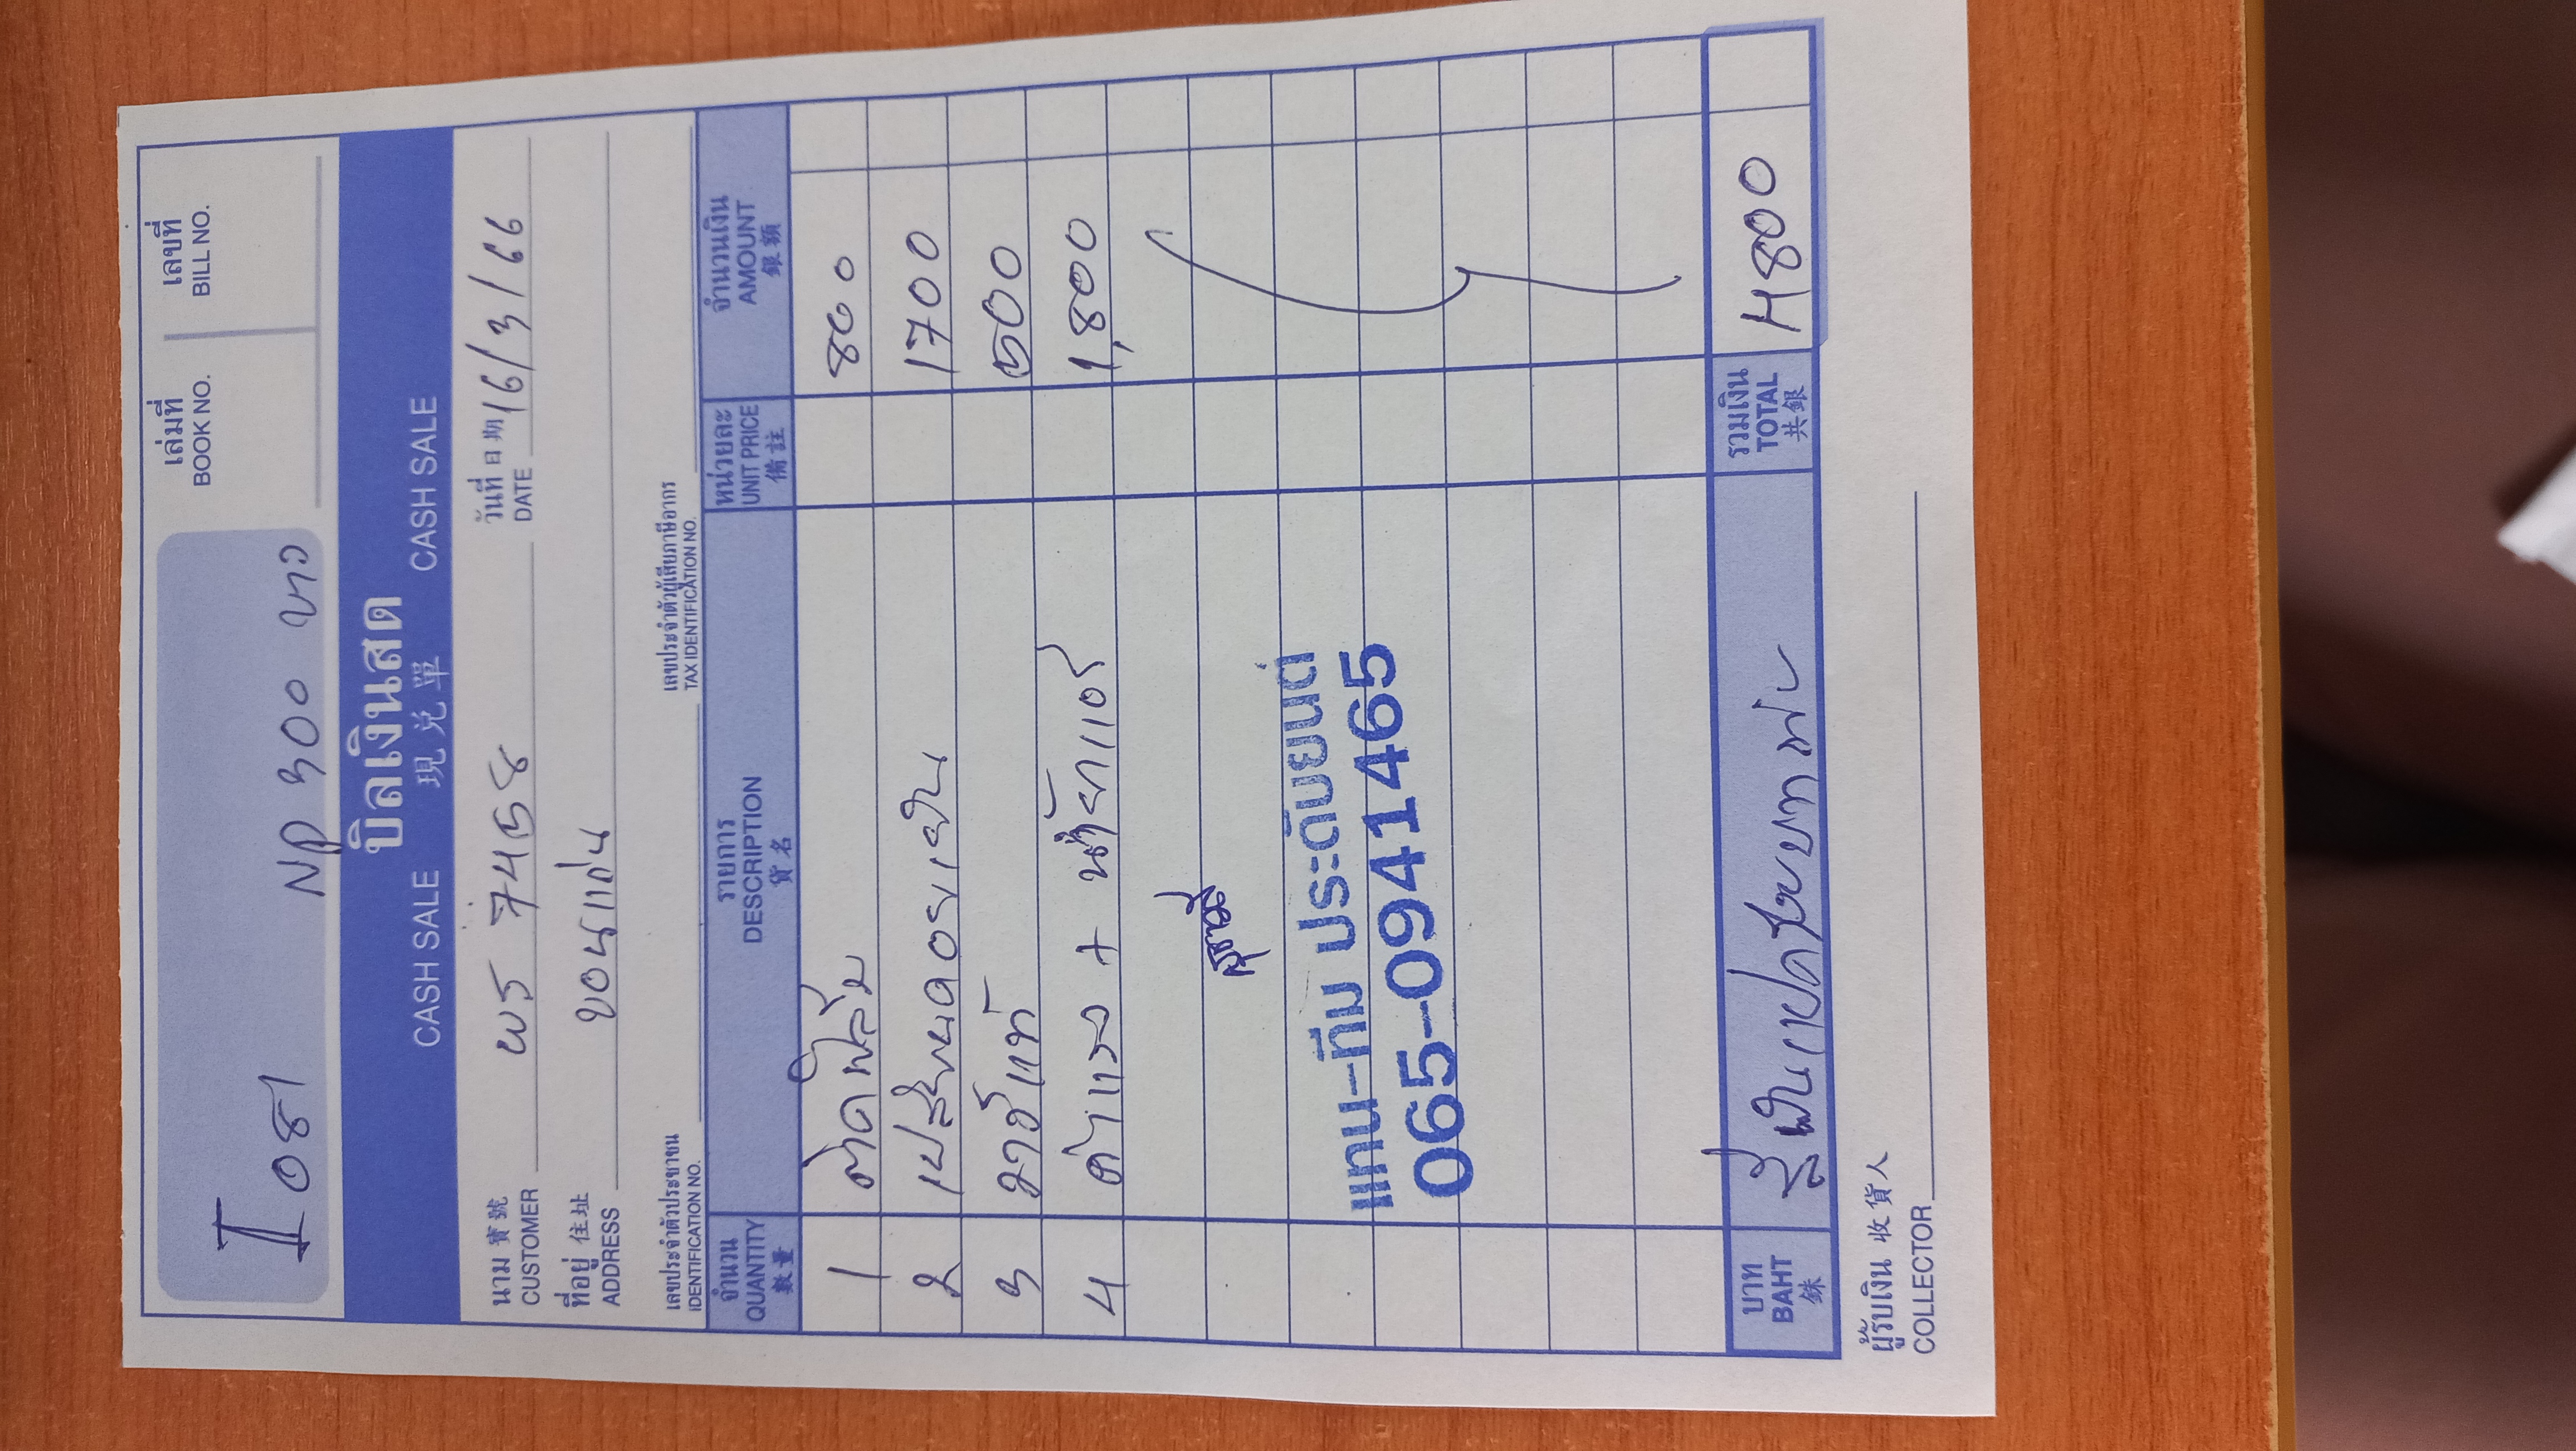 เล่มที่ เลขที่
BOOK NO. BILL NO.
NP 300 ขาว
บิลเงินสด
CASH SALE 現兑單 CASH SALE
นาม 寳號 พร 7458 วันที่ 日期 16/3/66
CUSTOMER DATE
ที่อยู่ 住址 ขอนแก่น
ADDRESS
เลขประจำตัวประชาชน เลขประจำตัวผู้เสียภาษีอากร
IDENTIFICATION NO. TAX IDENTIFICATION NO.
จำนวน รายการ หน่วยละ จำนวนเงิน
QUANTITY DESCRIPTION UNIT PRICE AMOUNT
數量 貨名 備註 銀額
1 ติดฟิล์ม 800
2 1700
3 500
4 ค่าแรง + น้ำยาแอร์ 1,800
แทน-ทีม ประดับยนต์
065-0941465
บาท สี่พันแปดร้อยบาทถ้วน รวมเงิน 4800
BAHT TOTAL
銖 共銀
ผู้รับเงิน 收貨人
COLLECTOR